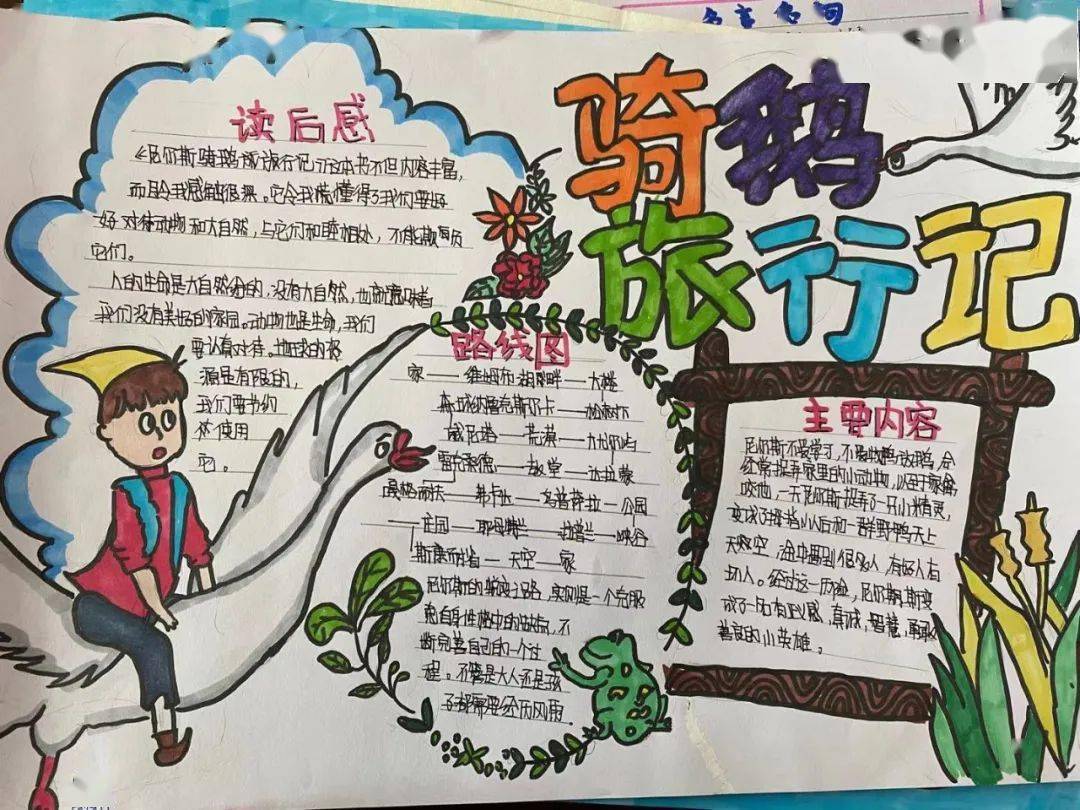 名言名句
骑鹅
旅行记
读后感
《尼尔斯骑鹅旅行记》这本书不但内容丰富,
而且令我感触很深。它令我懂得了我们要好
好对待动物和大自然,与它们和睦相处,不能欺负
它们。
人的生命是大自然给的,没有大自然,也就意味着
我们没有美好的家园。动物也是生命,我们
要认真对待。地球的资
源是有限的,
我们要节约
使用
它。
路线图
家——维姆布湖湖畔——大楼
森城内鲁克斯尔卡——松树下
威尼塔——荒蕉——
雷克桑德——教堂——达拉蒙
——弗卡达——乌普萨拉—公园
——庄园——耶姆特兰——拉普兰—峡谷
斯康耐省——天空——家
尼尔斯的蜕变之路,实则是一个克服
自身性格中的缺点,不
断完善自己的一个过
程。不管是大人还是孩
子都需要经历风雨
主要内容
尼尔斯不爱学习,不爱牧鹅放鸭,会
经常捉弄家里的小动物,以至于家禽
咬他,一天尼尔斯捉弄了一只小精灵,
变成了拇指小人后和一群野鸭天上
天空,途中遇到很多人,有好人有
坏人。经过这一历险,尼尔斯变
成了一名有正义感,真诚,智慧,勇敢
善良的小英雄。